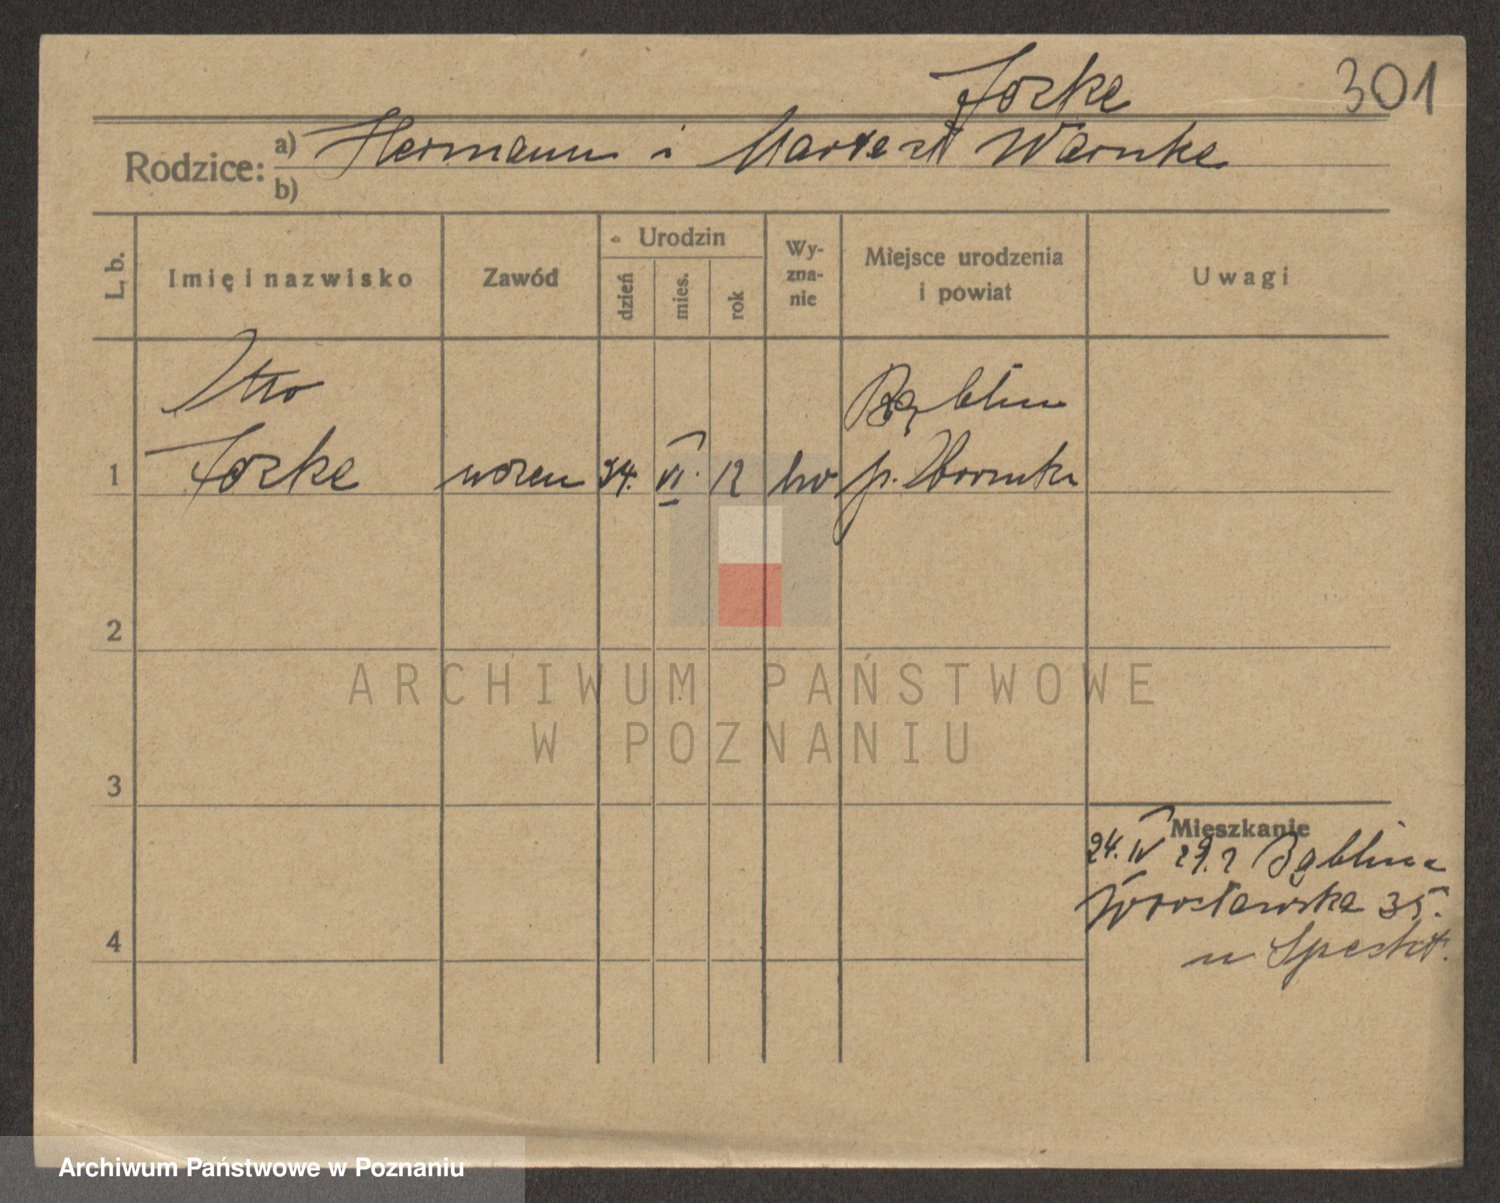 Joske 301
Rodzice: a) Hermann i Warnke
b)
L. b.
Imię i nazwisko
Zawód
Urodzin
dzień
mies.
rok
Wy-
zna-
nie
Miejsce urodzenia
i powiat
Uwagi
Otto
Joske
1
VI. 12
Bąblin
p. Oborniki
2
3
4
Mieszkanie
24. IV 29. z Bąblina
Wrocławska 35.
u
ARCHIWUM PAŃSTWOWE
W POZNANIU
Archiwum Państwowe w Poznaniu